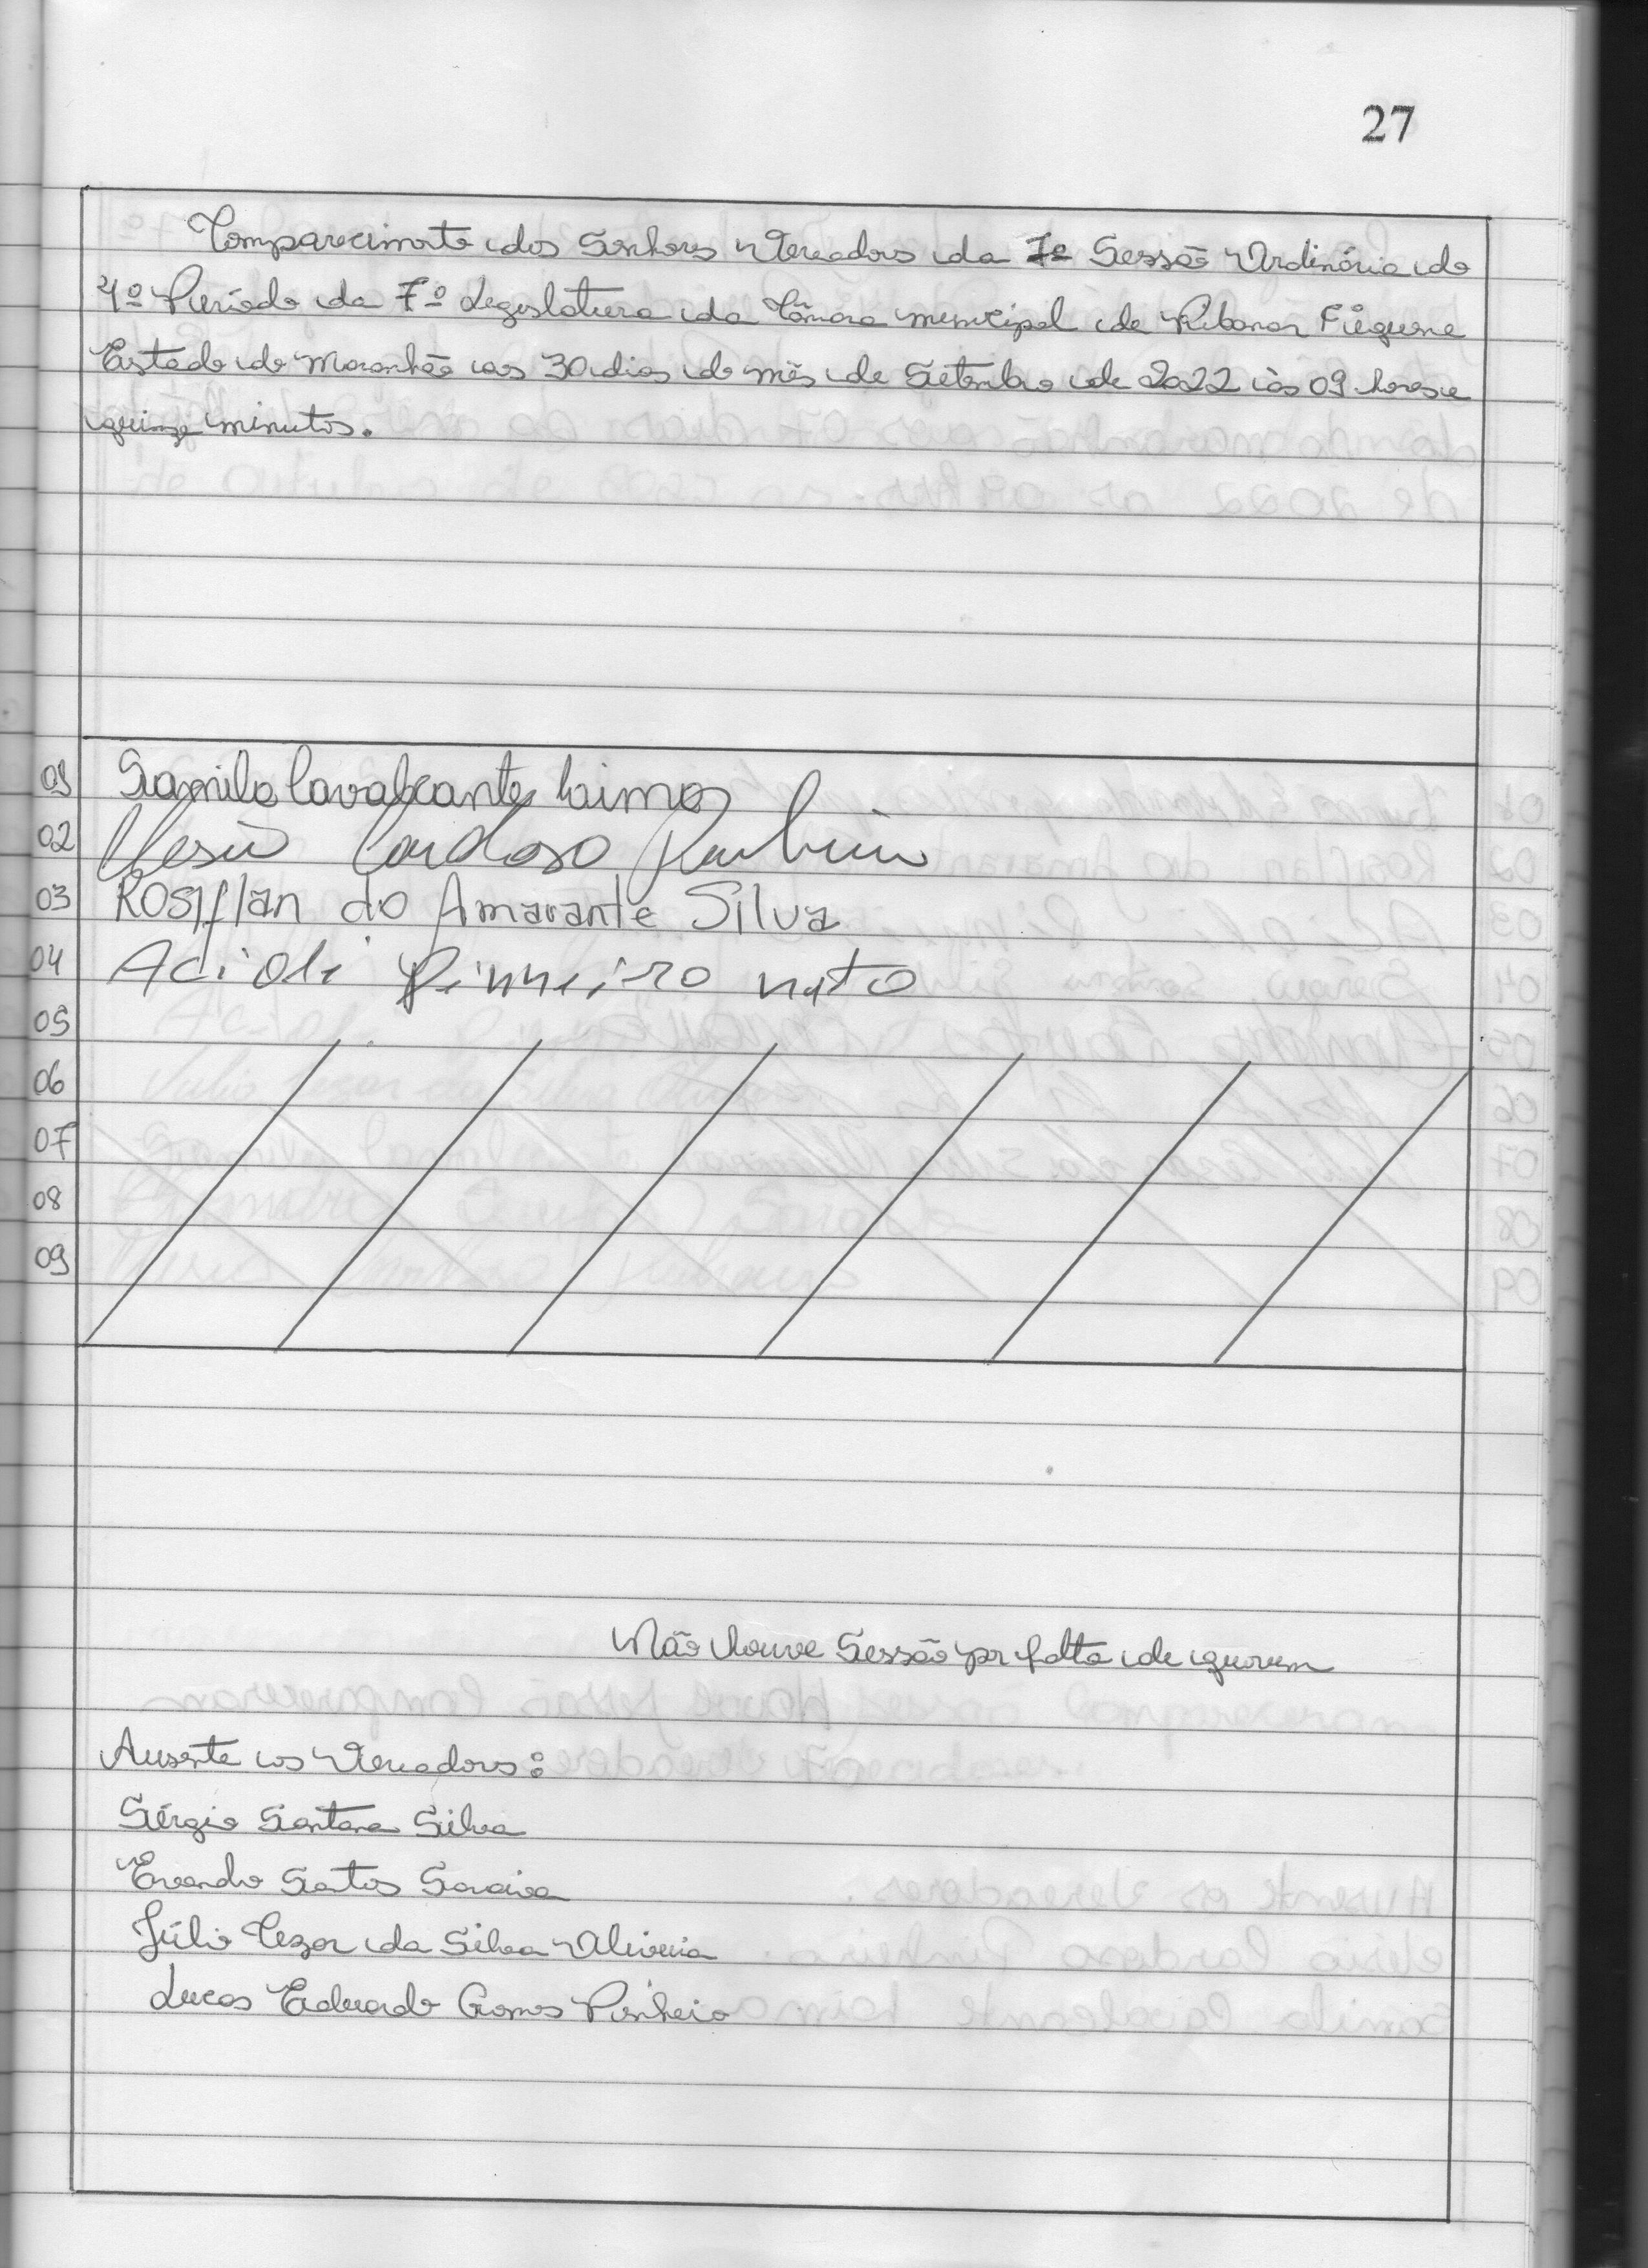 27
Comparecimento dos Senhores Vereadores da 7ª Sessão Ordinária do
4º Período da 7º Legislatura da Câmara municipal de Ribamar Fiquene
Estado do Maranhão aos 30 dias do mês de Setembro de 2022 às 09 horas e
quinze minutos.
01 Samila Cavalcante Lima
02 Clesio Cardoso Pinheiro
03 Rosiflan do Amarante Silva
04 Acioli Pinheiro neto
05
06
07
08
09
Não houve Sessão por falta de quorum
Ausente os Vereadores:
Sérgio Santana Silva
Evandro Santos Saraiva
Júlio Cezar da Silva Oliveira
Lucas Eduardo Gomes Pinheiro